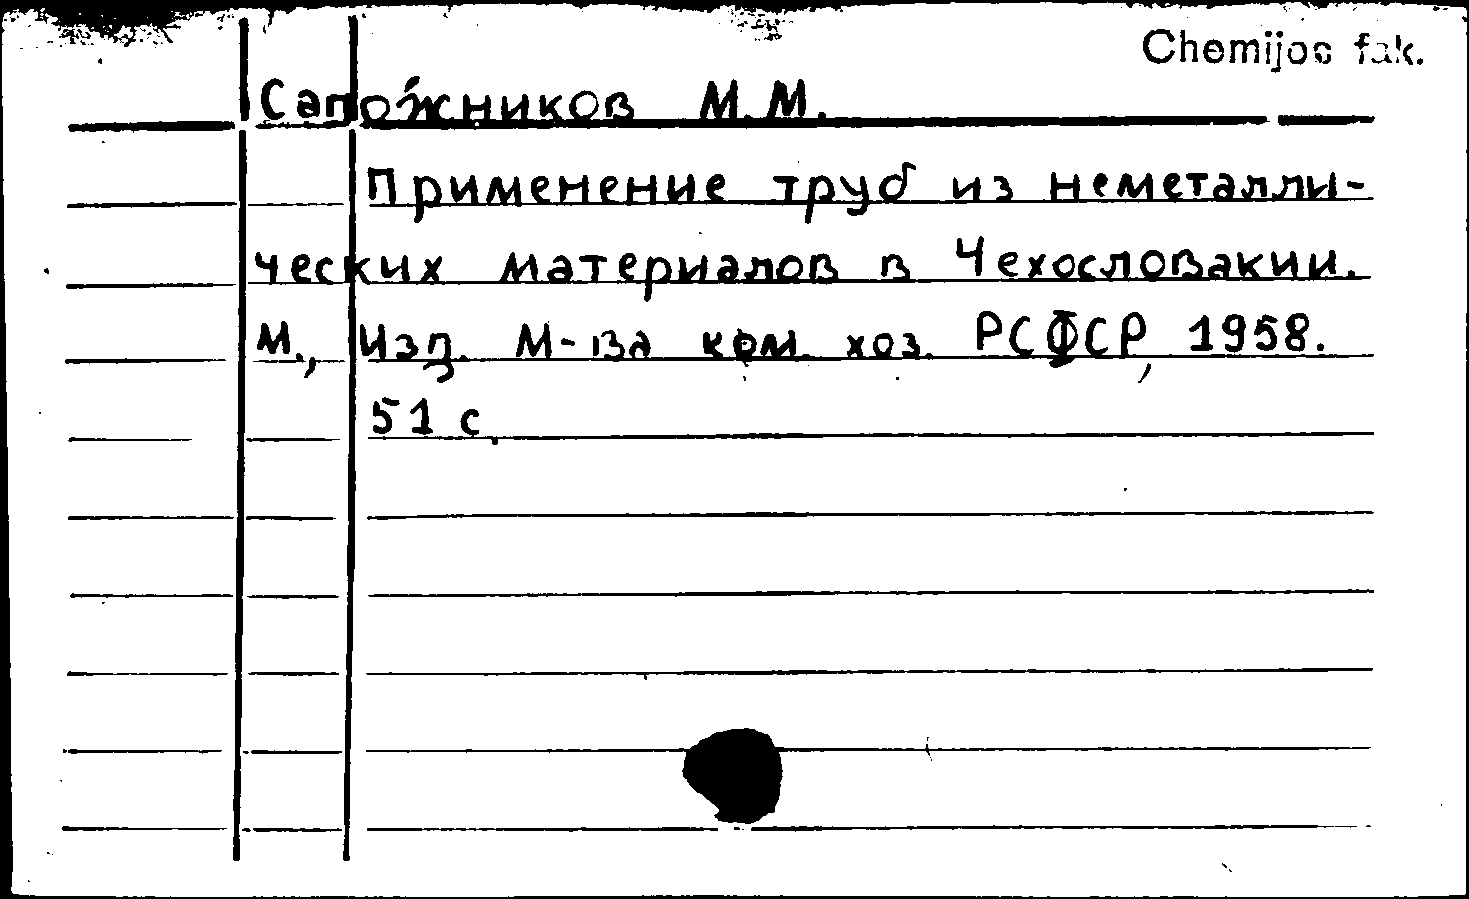 Chemijos fak.
Сапожников М.М.
Применение труб из неметалли-
ческих материалов в Чехословакии.
М., Изд. М-ва ком. хоз. РСФСР, 1958.
51 с.